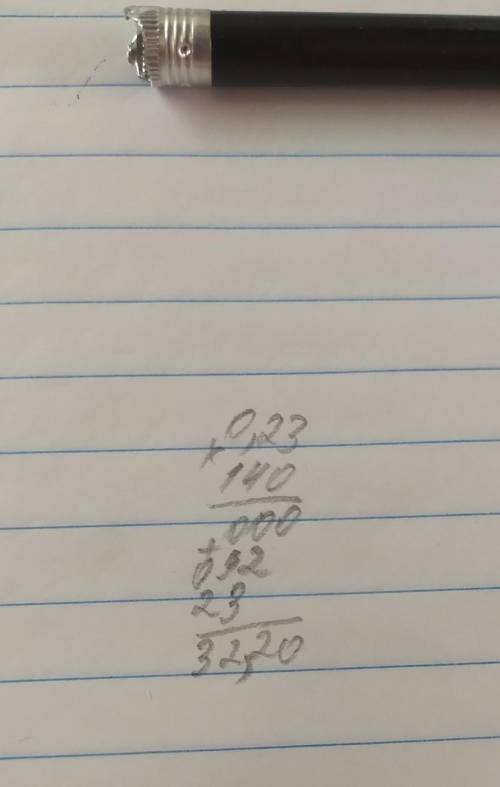 0,23
× 140
000
+ 092
23
32,20